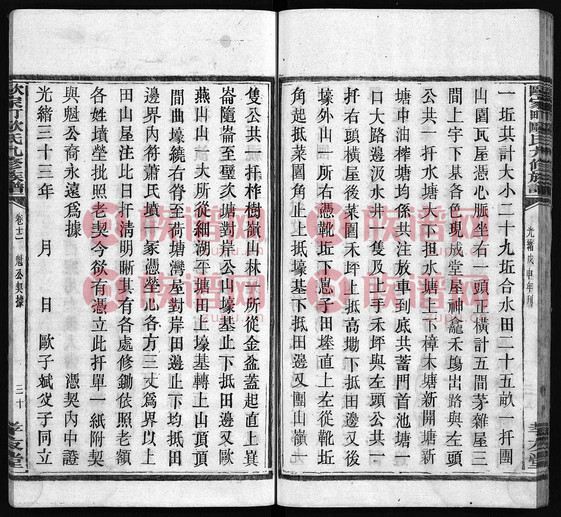 一坵共計大小二十九坵合水田二十五畝一扦團
山園瓦屋憑心脈坐右一頭正橫計五間茅雜屋三
間上字下基各色現成堂屋神龕禾塲出路與左頭
公共一扦水塘大下担水塘上下樟木塘新開塘新
塘中油榨塘均係共注放車到底共蓄門首池塘一
口大路邊汲水井一眼及門首禾坪與左頭公共一
扦右頭橫屋後菜園禾坪上抵高塝下抵田邊又後
壕外山一所右憑靴坵下憑子田壕直上左從靴坵
角起抵菜園上抵塘基下抵菜園止一扦又團山嶺一
隻公共一扦柞樹嶺山林一所從金盆蓋起直上異
崙隨崙至璧次塘對岸公山壕基止下抵田邊又歐
燕山山一大所從細湖平塘田上壕基轉上山頂頂
間曲壕繞右脊至荷塘灣屋對岸田邊止下均抵田
邊界內符蕭氏墳一冢憑坐心各方三丈爲界以上
田山屋注比日扦清明晰其有各處修鋤依照老額
各姓墳塋批照老契今欲有憑立此扦單一紙附契
與魁公裔永遠爲據 憑契內中證
光緖三十三年 月 日 歐子斌父子同立
歐家町歐氏九修族譜
卷十二 魁公契據
三十
孝友堂
光緖戊申年刊
族谱网